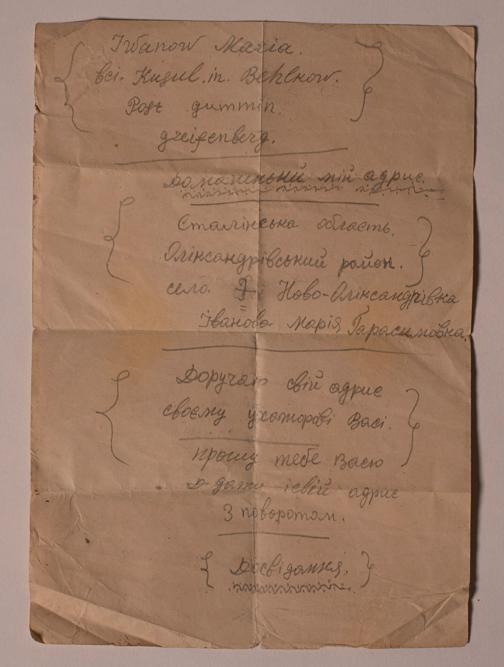 Iwanow Maria.
bei. Kugul. in. Behlkow.
Post gummin.
greifenberg.
Домашньий мій адрис.
Сталінська область.
Олінсандрівський район.
село. Ново-Олінсандрівка
Іванова Марія Гарасимовна.
Доручаю свій адрис
своєму ухажорові Васі.
прошу тебе Васю
дажи і свій адрис
З поворотом.
Досвідання.